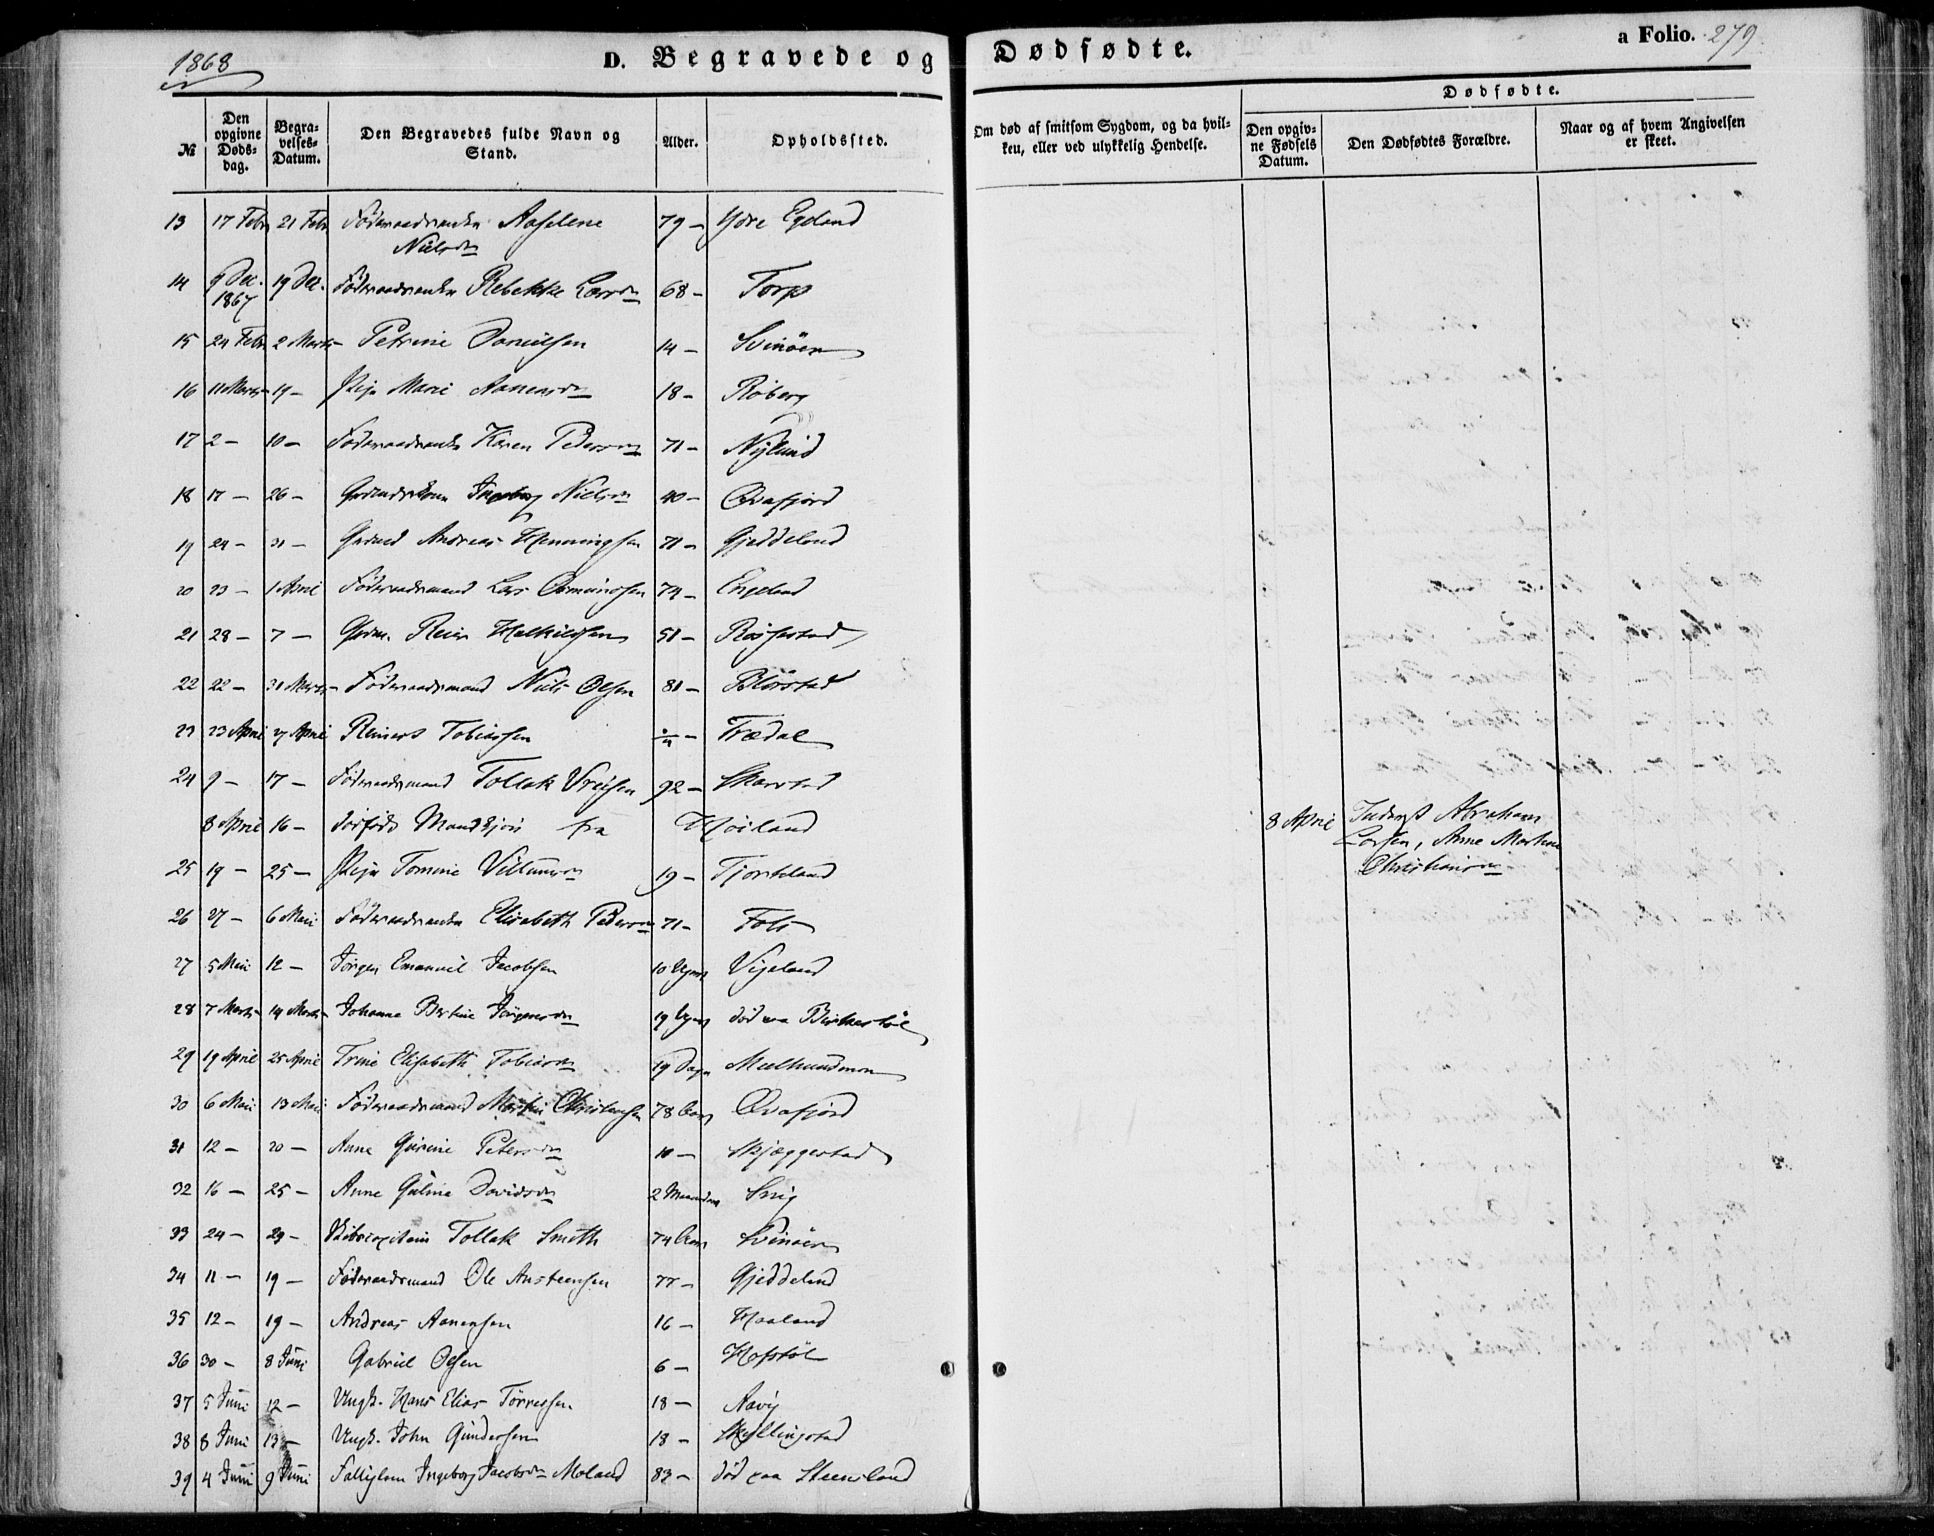 1868
D. Begravede og Dødfødte.
a Folio. 279
№
Den opgivne Døds-dag.
Begra-velses-Datum.
Den Begravedes fulde Navn og Stand.
Alder.
Opholdssted.
Om død af smitsom Sygdom, og da hvil-ken, eller ved ulykkelig Hendelse.
Dødfødte.
Den opgiv-ne Fødsels Datum.
Den Dødfødtes Forældre.
Naar og af hvem Angivelsen er skeet.
13 17 Febr 21 Febr Føderaadsenke Aaselene 79 - Ydre Egeland
Nielsdn
14 9 Dec. 19 Dec. Føderaadsenke Rebekke Larsdn 68 - Torp
1867
15 24 Febr 2 Marts Petrine Danielsen 14 - Svinöer
16 11 Marts 19 - Pige Marie Aanensdn 18 - Röberg
17 2 - 10 - Føderaadsenke Karen Pedersdn 71 - Nylund
18 17 - 26 - Gmdskone Ingeborg Nielsdn 40 - Qvafjord
19 24 - 31 - Gdmd Andreas Henningsen 71 - Gjeddeland
20 23 - 1 April Føderaadsmand Lars Osmundsen 74 - Engeland
21 28 - 7 - Gdm. Reier Halkildsen 51 - Röjsestad
22 22 - 31 Marts Føderaadsmand Niels Olsen 81 - Blörstad
23 23 April 27 April Reiners Tobiassen - Trædal
24 9 - 17 - Føderaadsmand Tollak Vrölsen 92 - Skarstad
8 April 16 - dødfødt Mandkjön fra Höiland 8 April Inderst Abraham
Larsen, Anne Martine
Christiansdn
25 19 - 25 - Pige Tomine Villumsdn 19 - Tjorteland
26 27 - 6 Mai Føderaadsenke Elisabeth Pedersdn 71 - Fots
27 5 Mai 12 - Jörgen Emanuel Jacobsen 10 Uger Vigeland
28 7 Marts 14 Marts Johanne Bertine Jörgensdn 19 Uger död paa Birkestöl
29 19 April 25 April Trine Elisabeth Tobiasdn 19 Dage Meelhuusmoen
30 6 Mai 13 Mai Føderaadsmand Morten Christensen 78 Aar Qvafjord
31 12 - 20 - Anne Gurine Petersdn 10 - Skjæggestad
32 16 - 25 - Anne Guline Davidsdn 2 Maaneder Snig
33 24 - 29 - Skibscapitain Tollak Smith 74 Aar Svinöer
34 11 - 19 - Føderaadsmand Ole Austeensen 77 - Gjeddeland
35 12 - 19 - Andreas Aanensen 16 - Haaland
36 30 - 8 Juni Gabriel Olsen 6 - Hafstöl
37 5 Juni 12 - Ungk. Hans Elias Törressen 18 - Aavig
38 8 Juni 13 - Ungk. John Gundersen 18 - Skjellingstad
39 4 Juni 9 Juni Fattiglem Ingeborg Jacobsdn Moland 83 - död paa Steensland